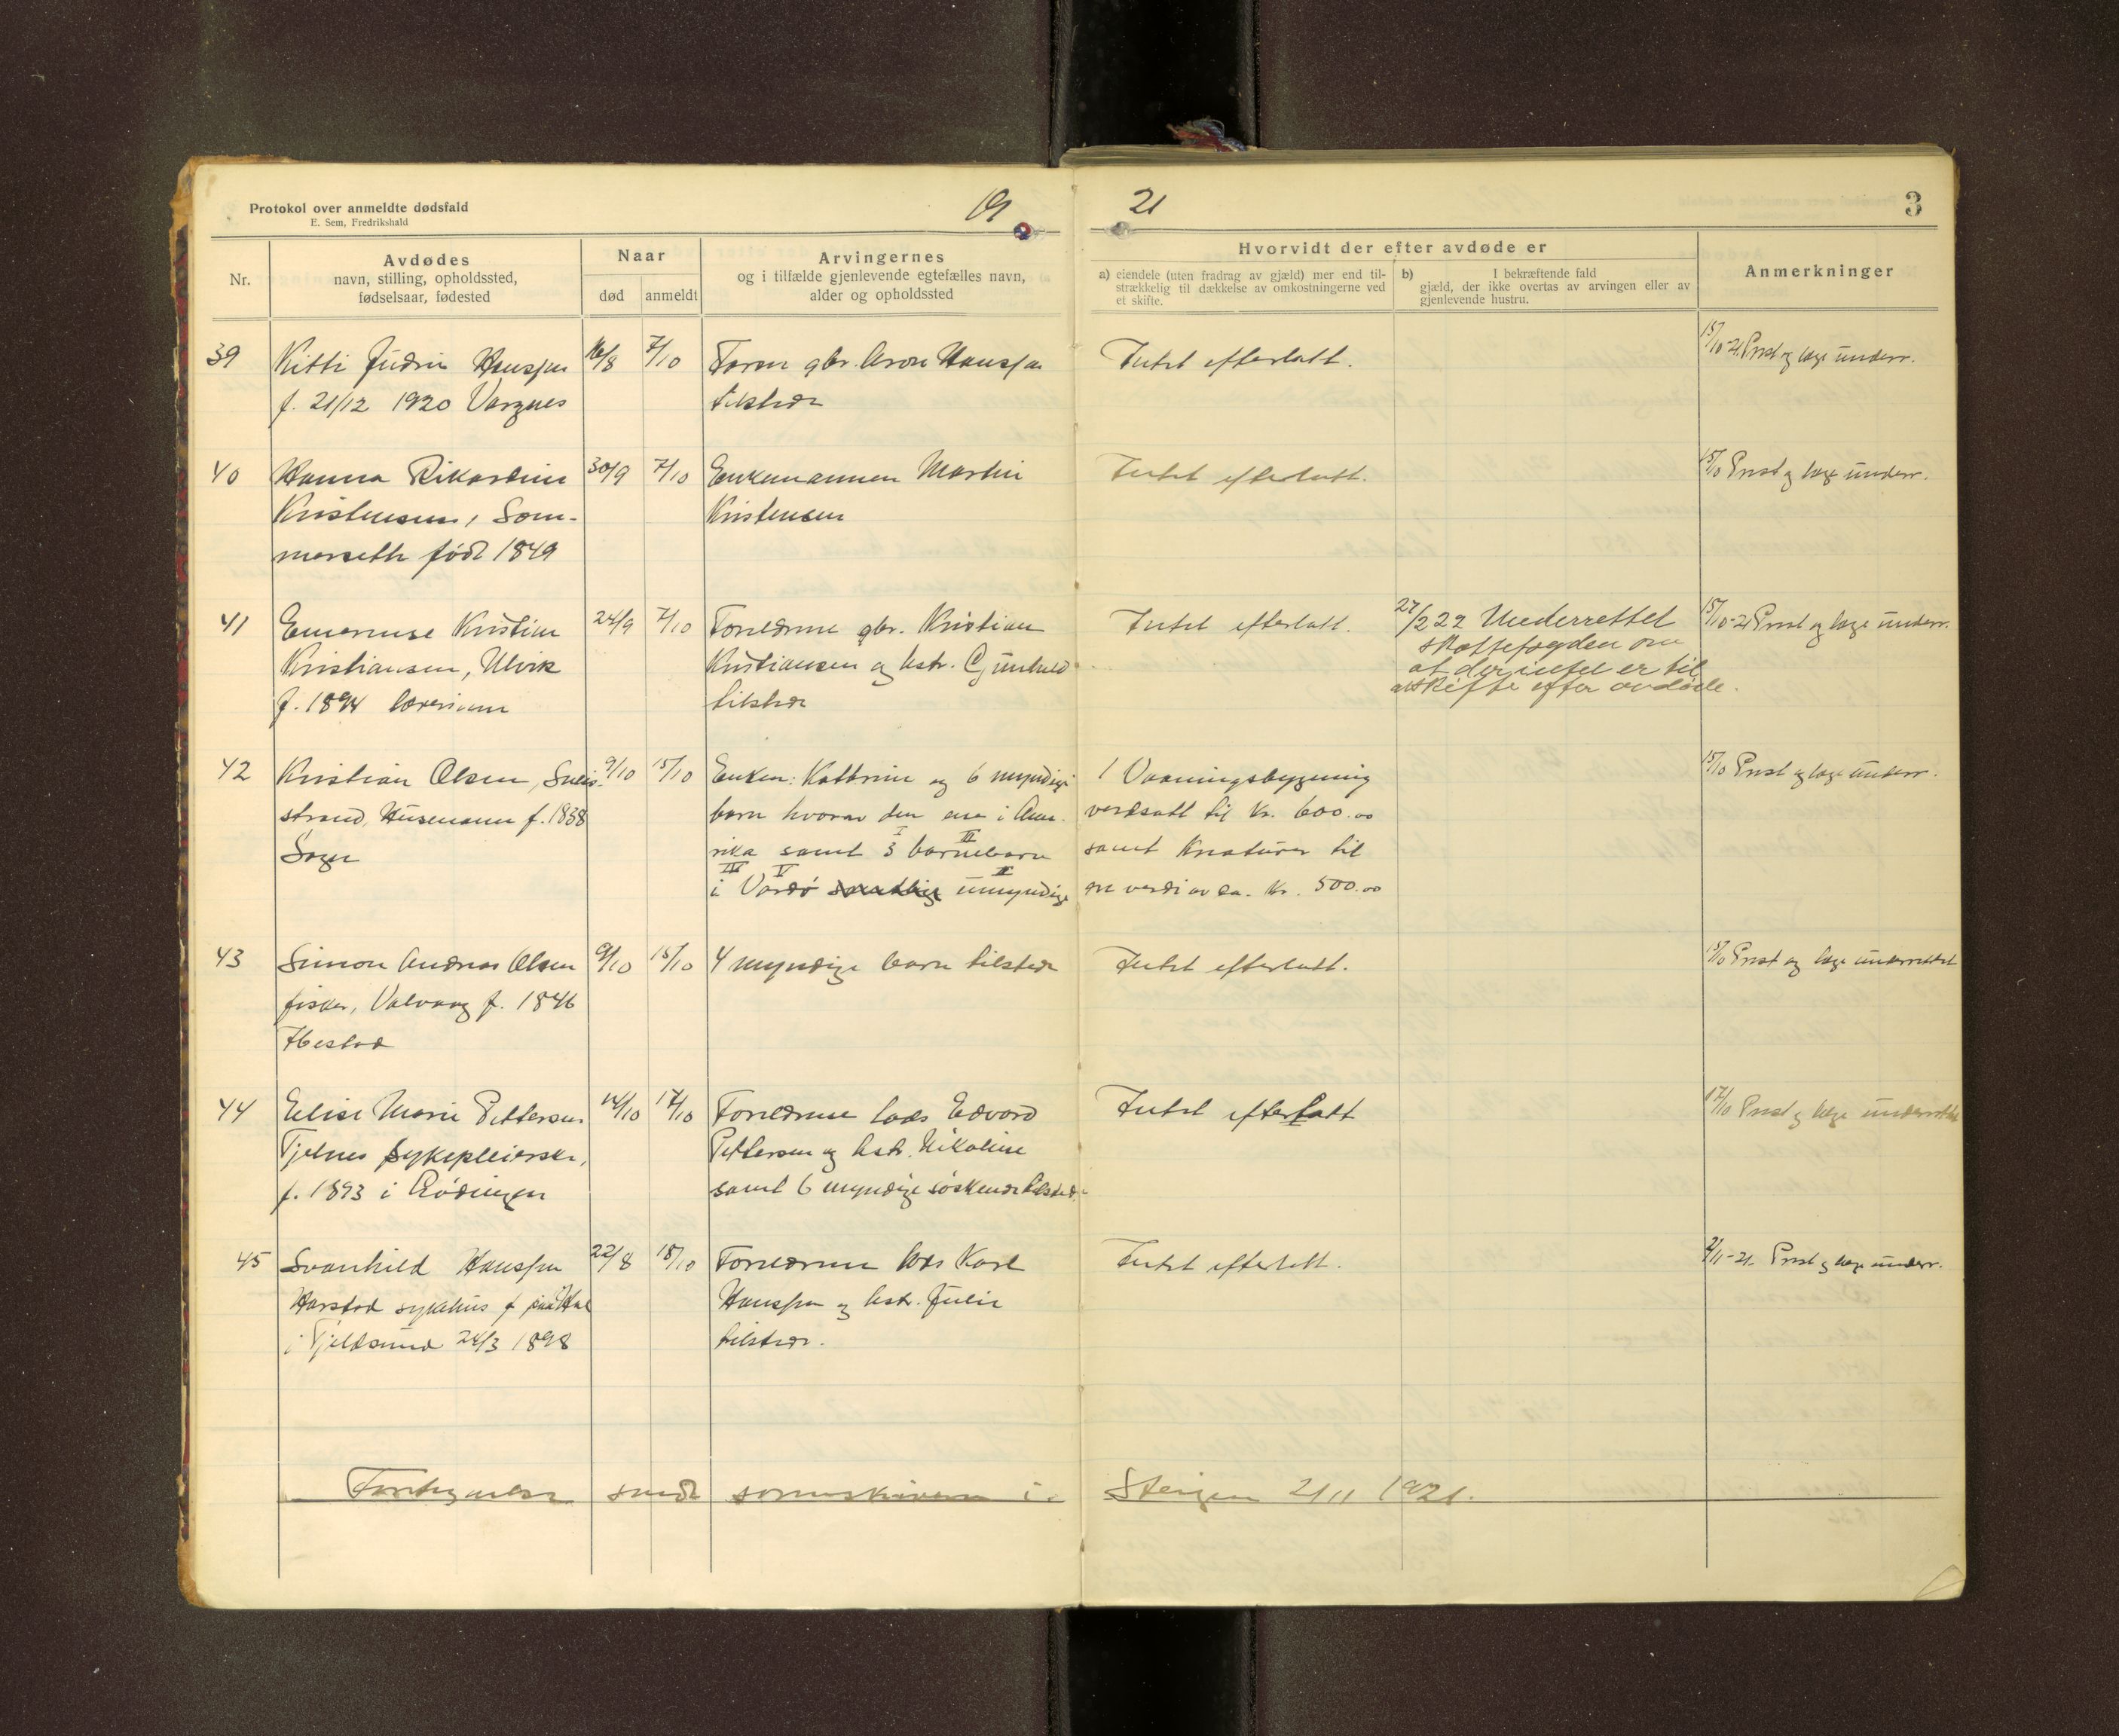 Protokol over anmeldte dødsfald
E. Sem, Fredrikshald
19 21
3
Nr.
Avdødes
navn, stilling, opholdssted,
fødselsaar, fødested
Naar
død
anmeldt
Arvingernes
og i tilfælde gjenlevende egtefælles navn,
alder og opholdssted
Hvorvidt der efter avdøde er
a) eiendele (uten fradrag av gjæld) mer end til-
strækkelig til dækkelse av omkostningerne ved
et skifte.
b) I bekræftende fald
gjæld, der ikke overtas av arvingen eller av
gjenlevende hustru.
Anmerkninger
39 Kitti Hanssen 16/8 7/10 Faren gbr. Aron Hanssen Intet efterlatt. 15/10-21 Prest og læge underr.
f. 21/12 1920 Vargnes tilstede
40 Hanna Rikardine 30/9 7/10 Enkemannen Martin Intet efterlatt. 15/10 Prest og læge underr.
Kristensen, Som- Kristensen
merseth født 1849
41 Kristian 24/9 7/10 Forældrene gbr. Kristian Intet efterlatt. 27/2 22 Underrettet 15/10-21 Prest og læge underr.
Kristiansen, Ulvik Kristiansen og hstr. Gunhild skattefogden om
f. 1894 lærerinne tilstede at der intet er til
at skifte efter avdøde.
42 Kristian Olsen, 9/10 15/10 Enken: Kathrine og 6 myndige 1 Vaaningsbygning 15/10 Prest og læge underr.
strand, Husmann f. 1838 barn hvorav den ene i Ame- verdsatt til Kr. 600.00
rika samt 3 barnebarn samt Kreaturer til
i Vardö umyndige en verdi av ca. Kr. 500.00
I II
IV V II
43 Simon Andreas Olsen 9/10 15/10 4 myndige barn tilstede Intet efterlatt. 15/10 Prest og læge underrettet
fisker, Valvaag f. 1846
Ibestad
44 Elise Marie Pettersen 14/10 17/10 Forældrene lods Edvard Intet efterlatt 17/10 Prest og læge underrettet
Tjelnes sykepleierske, Pettersen og hstr. Nikoline
f. 1893 i Lødingen samt 6 myndige söskende tilstede
45 Svanhild Hanssen 22/8 18/10 Forældrene lods Karl Intet efterlatt. 2/11-21. Prest og læge underr.
Harstad sykehus f. paa Hanssen og hstr. Julie
i Fjeldsund 24/3 1898 tilstede.
sendt sorenskriveren i Steigen 2/11 1921.